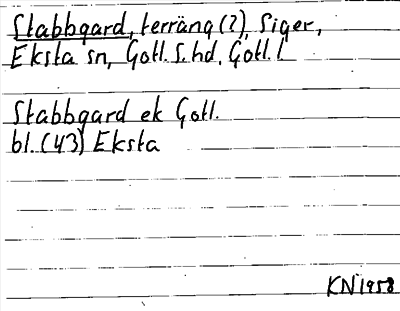 Stabbgard, terräng (?), Siger,
Eksta sn, Gotl. S. hd, Gotl. l.
Stabbgard ek Gotl.
bl. (43) Eksta
KN 1958